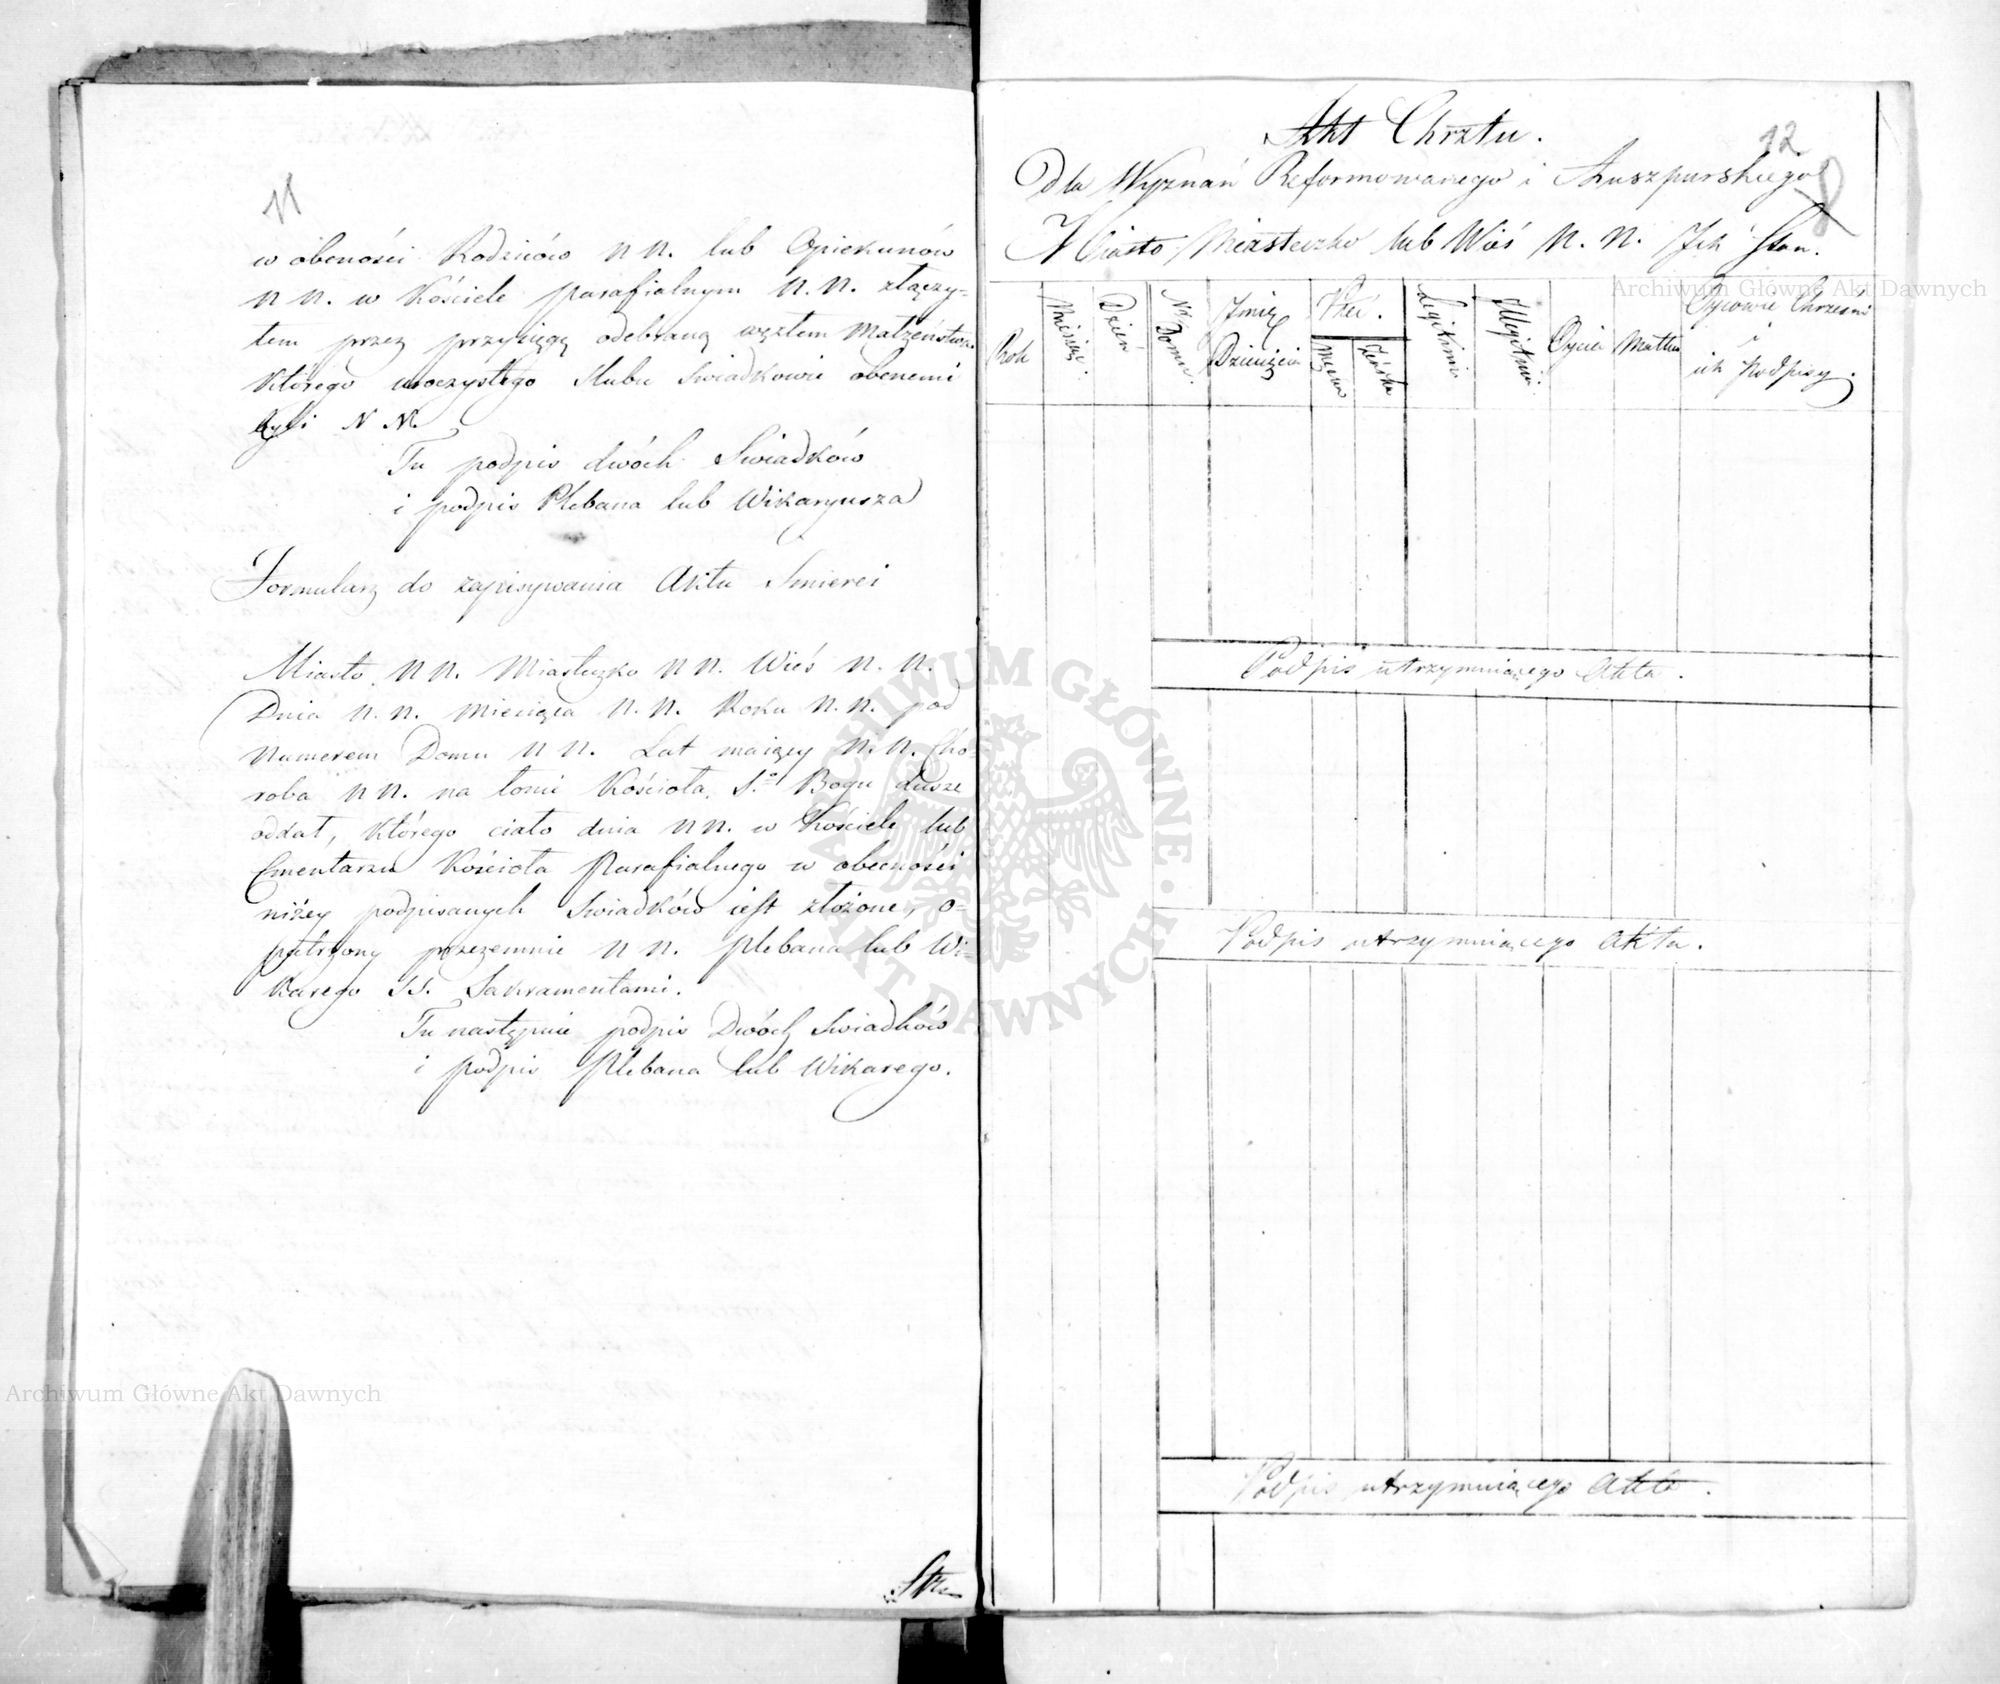 11
w obecności Rodziców N N. lub Opiekunów
N N. w Kościele parafialnym N. N. złączy=
łem przez przysięgę odebraną węzłem Małżeństwa
którego uroczystego Slubu Swiadkowie obecnemi
byli N N.
Tu podpis dwóch Swiadków
i podpis Plebana lub Wikaryusza
Formularz do zapisywania Aktu Smierci
Miasto N N. Miasteczko N N. Wieś N. N.
Dnia N. N. Miesiąca N. N. Roku N. N. pod
Numerem Domu N N. Lat maiący N. N. Cho=
roba N N. na łonie Kościoła S.º Bogu dusze
oddał, którego ciało dnia N N. w Kościele lub
Cmentarzu Kościoła Parafialnego w obecności
niżey podpisanych Swiadków iest złożone, o=
patrzony przezemnie N N. Plebana lub Wi=
karego SS. Sakramentami.
Tu następnie podpis Dwóch Swiadków
i podpis Plebana lub Wikarego.
12
Akt Chrztu.
Dla Wyznań Reformowanego i Auszpurskiego
Miasto Miasteczko lub Wieś N. N. Ich Stan.
Rok
Miesiąc.
Dzień
Nº Domu.
Imię Dziecięcia
Płeć.
Męska
Żeńska
Legitimi
Illegitimi
Oyciec
Matka
Oycowie Chrzestni
i
ich Podpisy.
Podpis utrzymuiącego Akta.
Podpis utrzymuiącego Akta.
Podpis utrzymuiącego Akta.
Archiwum Główne Akt Dawnych
Archiwum Główne Akt Dawnych
ARCHIWUM GŁÓWNE · AKT DAWNYCH ·